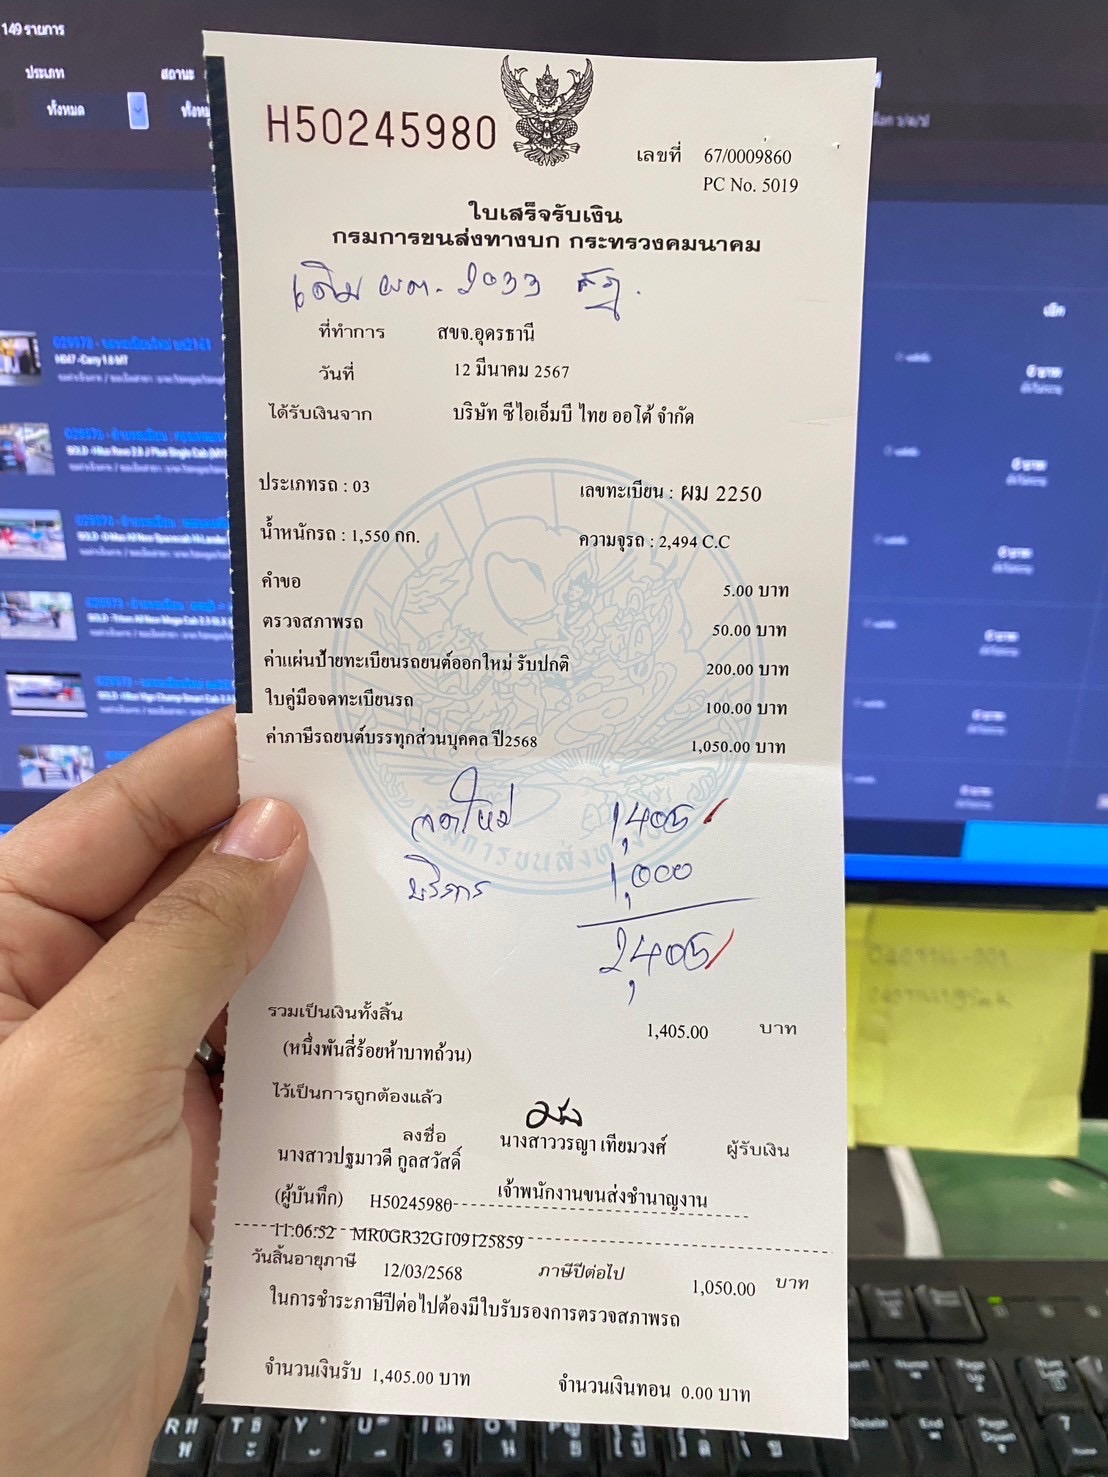 149 รายการ
ประเภท
สถานะ
ทั้งหมด
H50245980
เลขที่ 67/0009860
PC No. 5019
ใบเสร็จรับเงิน
กรมการขนส่งทางบก กระทรวงคมนาคม
เดิม ผต. 2033 สฎ.
ที่ทำการ สขจ.อุดรธานี
วันที่ 12 มีนาคม 2567
ได้รับเงินจาก บริษัท ซีไอเอ็มบี ไทย ออโต้ จำกัด
ประเภทรถ : 03 เลขทะเบียน : ผม 2250
น้ำหนักรถ : 1,550 กก. ความจุรถ : 2,494 C.C
คำขอ 5.00 บาท
ตรวจสภาพรถ 50.00 บาท
ค่าแผ่นป้ายทะเบียนรถยนต์ออกใหม่ รับปกติ 200.00 บาท
ใบคู่มือจดทะเบียนรถ 100.00 บาท
ค่าภาษีรถยนต์บรรทุกส่วนบุคคล ปี2568 1,050.00 บาท
จดใหม่ 1,405
บริการ 1,000
2,405
รวมเป็นเงินทั้งสิ้น 1,405.00 บาท
(หนึ่งพันสี่ร้อยห้าบาทถ้วน)
ไว้เป็นการถูกต้องแล้ว
ลงชื่อ นางสาววรญา เทียมวงศ์ ผู้รับเงิน
นางสาวปฐมาวดี กูลสวัสดิ์
(ผู้บันทึก) H50245980 เจ้าพนักงานขนส่งชำนาญงาน
11:06:52 MR0GR32G109125859
วันสิ้นอายุภาษี 12/03/2568 ภาษีปีต่อไป 1,050.00 บาท
ในการชำระภาษีปีต่อไปต้องมีใบรับรองการตรวจสภาพรถ
จำนวนเงินรับ 1,405.00 บาท จำนวนเงินทอน 0.00 บาท